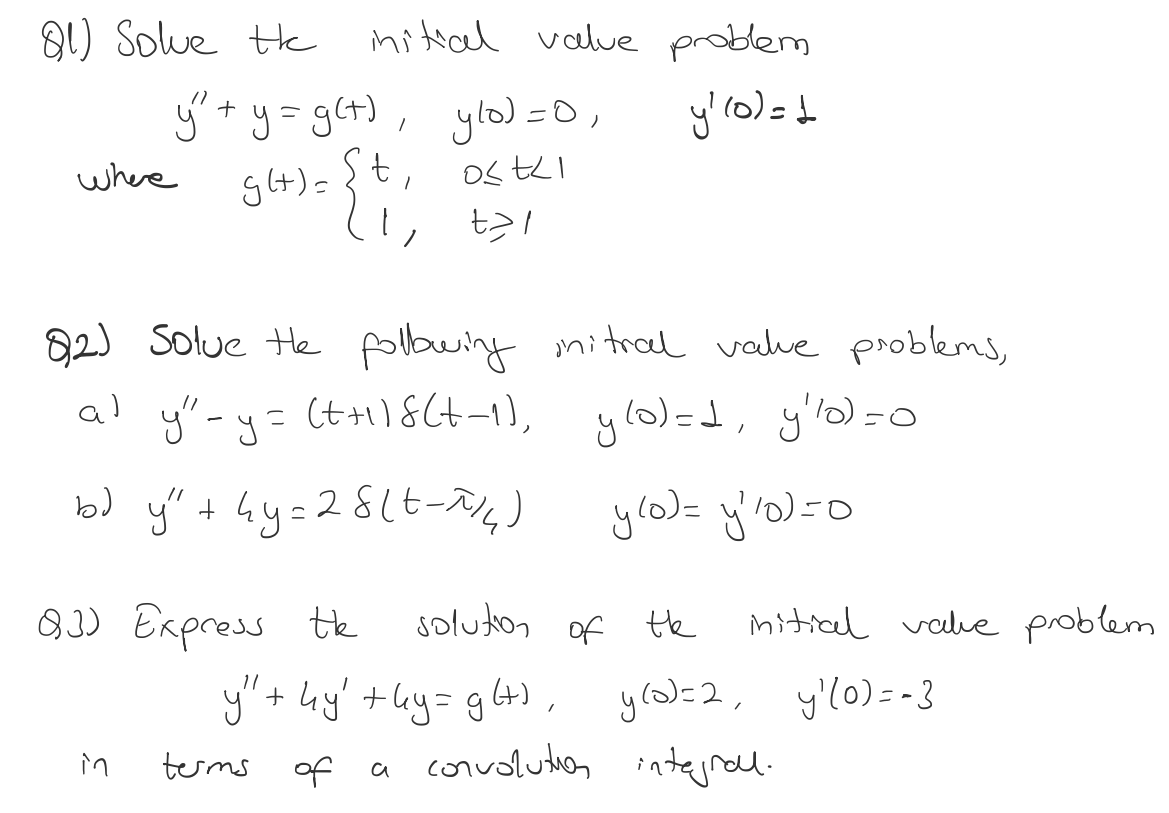 Q1) Solve the initial value problem
y'' + y = g(t), y(0) = 0, y'(0) = 1
where g(t) = { t, 0 ≤ t < 1
1, t ≥ 1
Q2) Solve the following initial value problems,
a) y'' - y = (t+1) δ(t-1), y(0) = 1, y'(0) = 0
b) y'' + 4y = 2 δ(t - π/4) y(0) = y'(0) = 0
Q3) Express the solution of the initial value problem
y'' + 4y' + 4y = g(t), y(0) = 2, y'(0) = -3
in terms of a convolution integral.